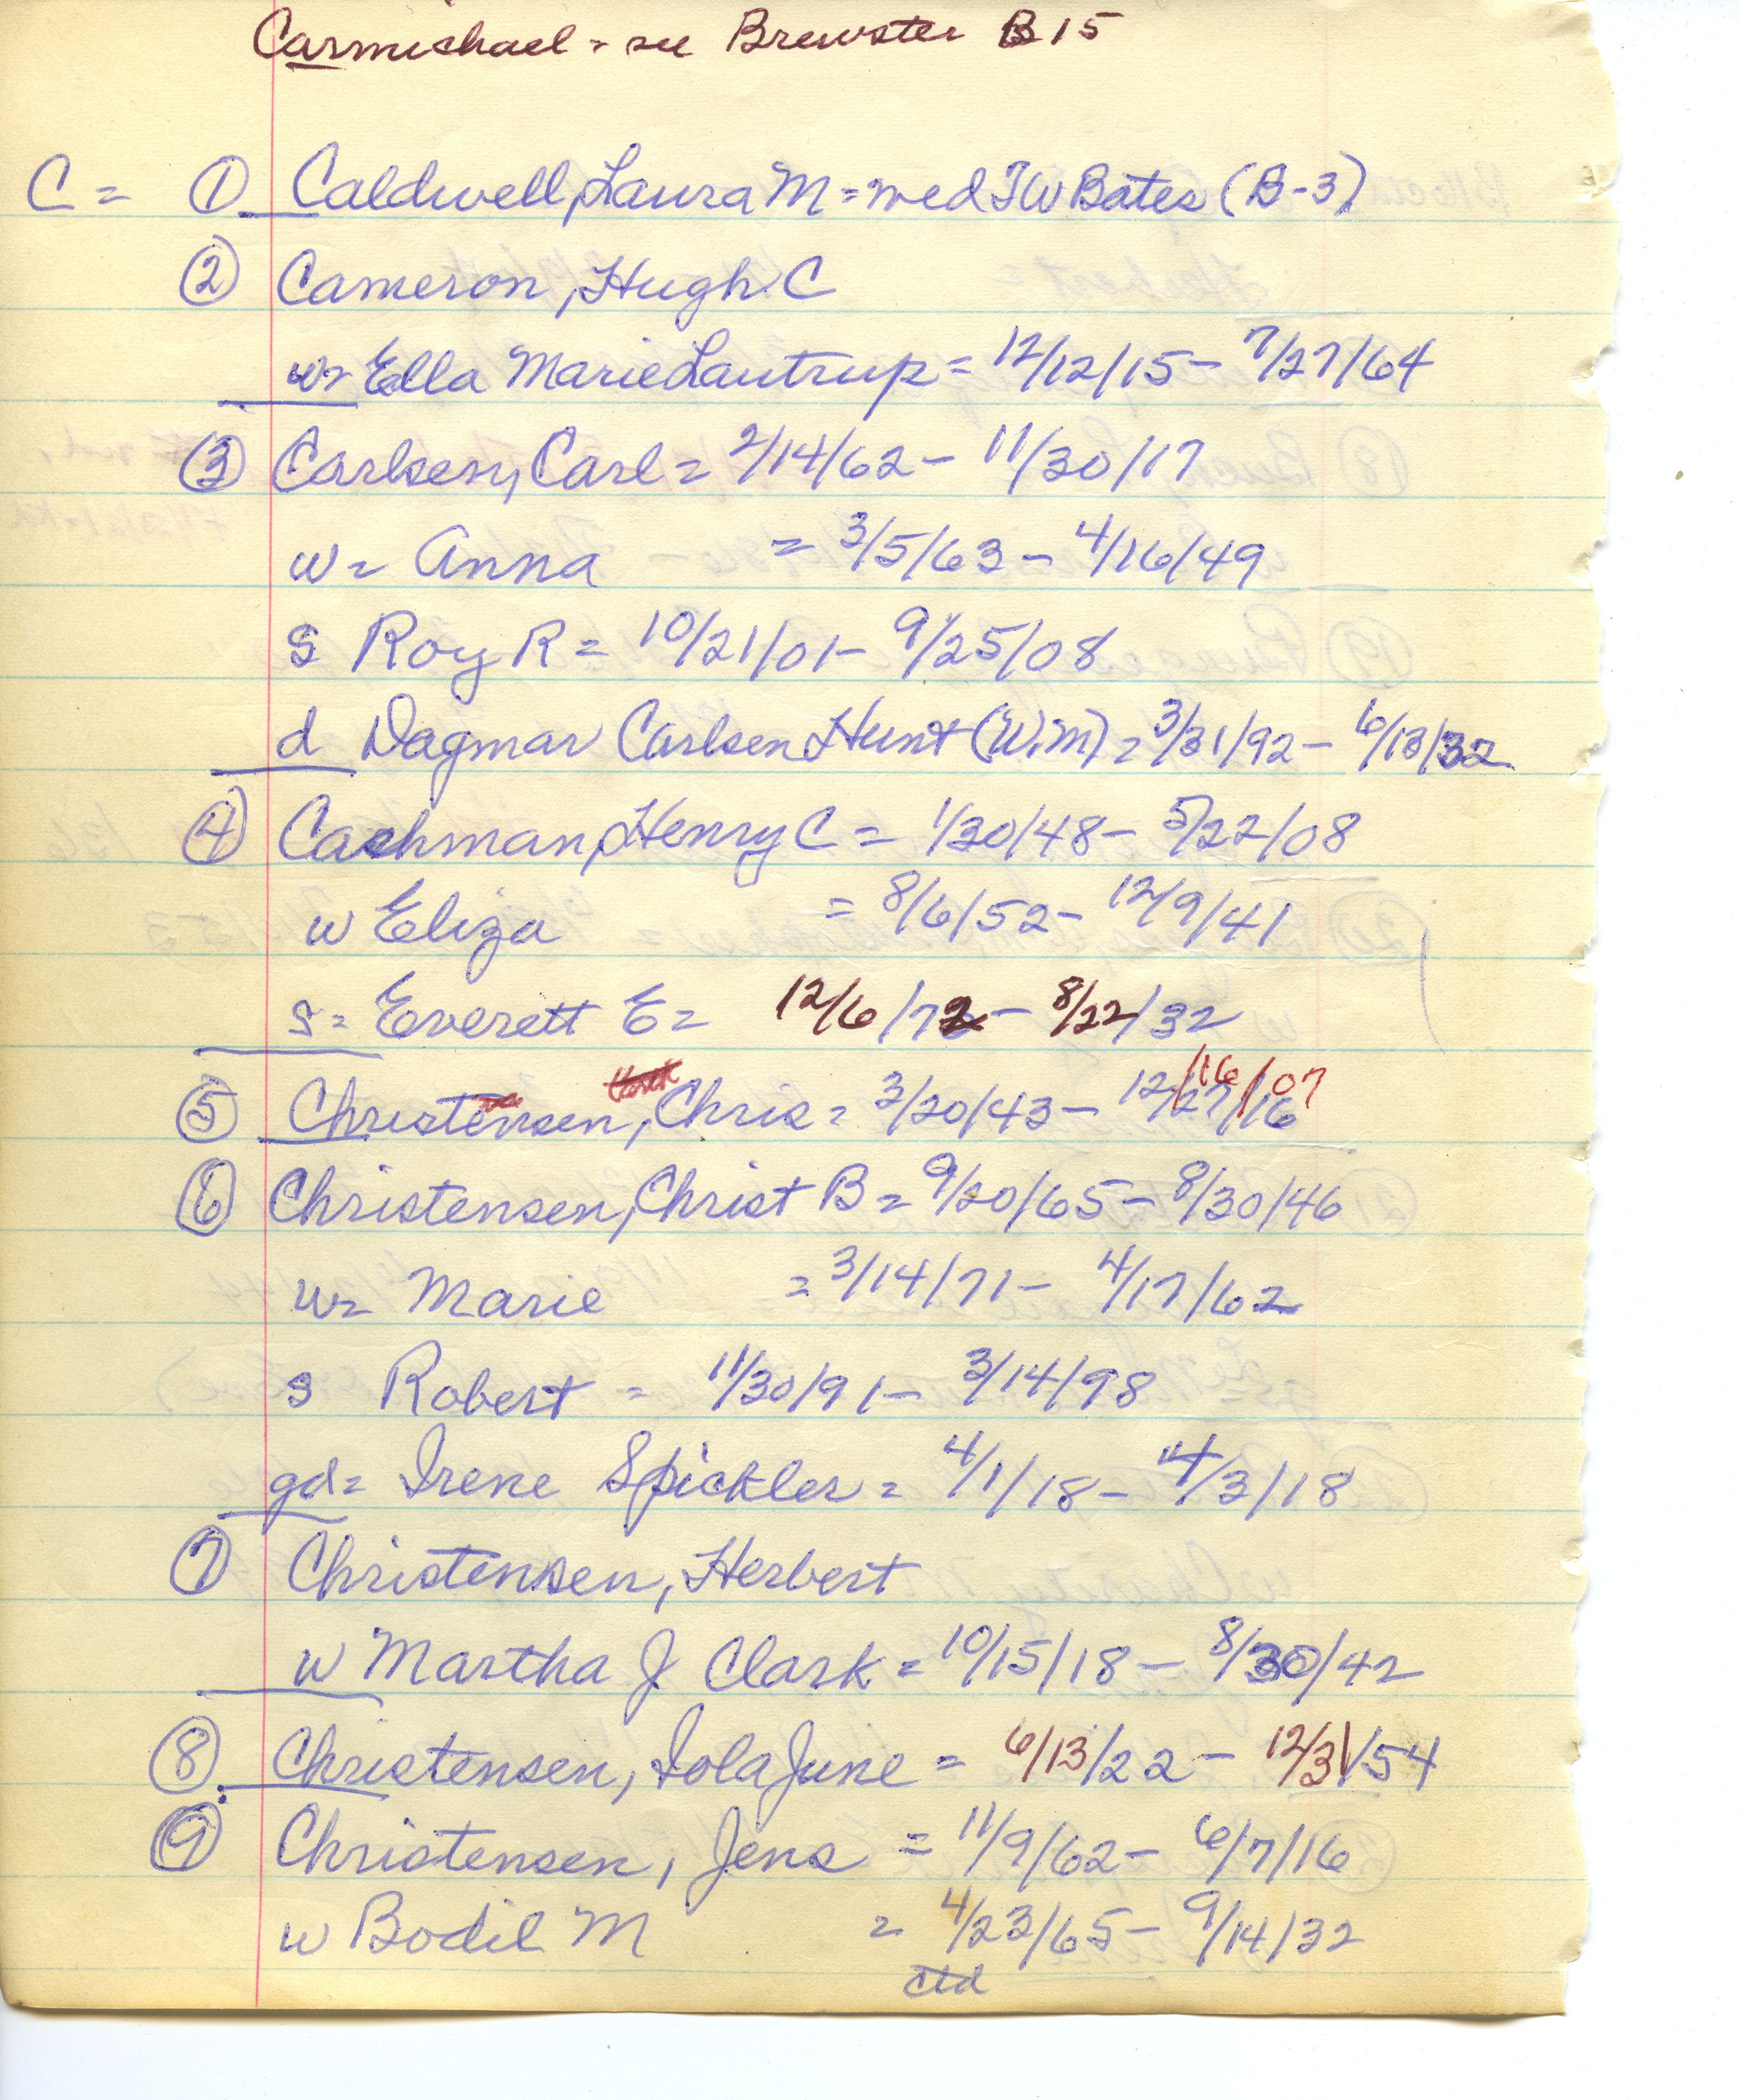 Carmichael = see Brewster B15
C = ① Caldwell, Laura M = wed T W Bates (B-3)
② Cameron, Hugh C
w= Ella Marie Lautrup = 12/12/15 - 7/27/64
③ Carlsen, Carl = 2/14/62 - 11/30/17
w= Anna = 3/5/63 - 4/16/49
s Roy R = 10/21/01 - 9/25/08
d Dagmar Carlsen Hunt (W.m) = 3/31/92 - 6/13/32
④ Cashman, Henry C = 1/30/48 - 5/22/08
w Eliza = 8/6/52 - 12/9/41
s= Everett E= 12/6/72 - 8/22/32
/16/07
⑤ Christensen, Chris = 3/20/43 - 12/27/16
⑥ Christensen, Christ B = 9/20/65 - 8/30/46
w= Marie = 3/14/71 - 4/17/62
s Robert = 11/30/91 - 3/14/98
gd= Irene Spickler = 4/1/18 - 4/3/18
⑦ Christensen, Herbert
w Martha J Clark = 10/15/18 - 8/30/42
⑧ Christensen, Iola June = 6/13/22 - 12/31/54
⑨ Christensen, Jens = 11/9/62 - 6/7/16
w Bodil M = 4/23/65 - 9/14/32
ctd